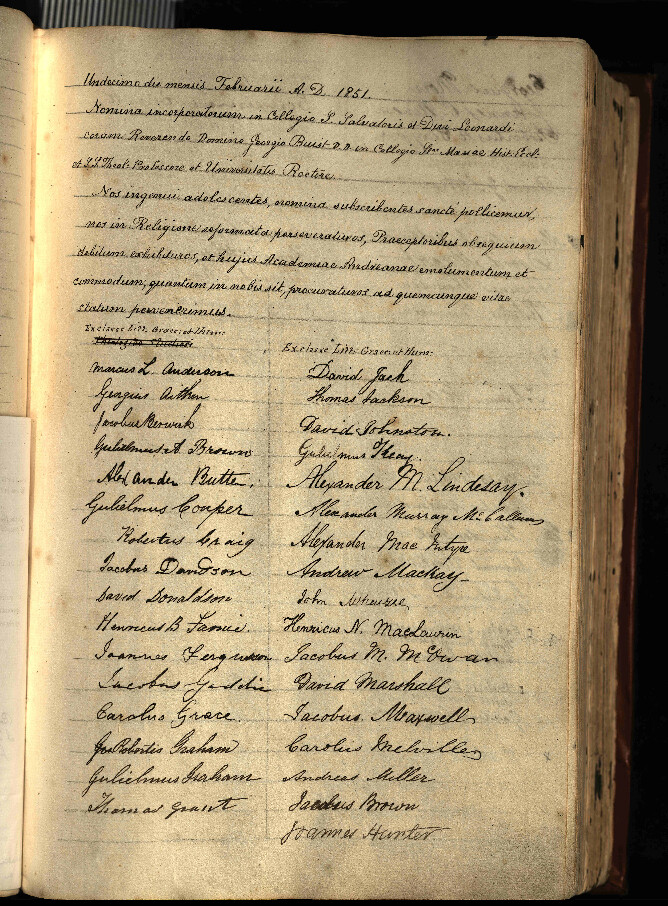 Undecimo die mensis Februarii A. D. 1851.
Nomina incorporatorum in Collegio S. Salvatoris et Divi Leonardi
coram Reverendo Domino Georgio Buist D.D. in Collegio Stae Mariae Hist. Eccl.
et S.S. Theol. Professore et Universitatis Rectore.
Nos ingenui adolescentes, nomina subscribentes sanctè pollicemur,
nos in Religione reformata perseveraturos, Praeceptoribus obsequium
debitum exhibituros, et hujus Academiae Andreanae emolumentum et
commodum, quantum in nobis sit, procuraturos ad quemcunque vitae
statum pervenerimus.
Ex classe Litt. Graec. et Hum:
Marcus L. Anderson
Georgius Aitken
Jacobus Berwick
Gulielmus A. Brown
Alexander Butter.
Gulielmus Couper
Robertus Craig
Jacobus Davidson
David Donaldson
Henricus B.
Joannes Ferguson
Jacobus Geddie
Carolus Grace.
Robertus Graham
Gulielmus Graham
Thomas Grant
Ex classe Litt. Graec. et Hum:
David Jack
Thomas Jackson
David Johnston.
Gulielmus Keay.
Alexander M. Lindesay.
Alexander Murray McCallum
Alexander Mac Intyre
Andrew Mackay
John
Henricus N. MacLaurin
Jacobus M. McOwan
David Marshall
Jacobus Maxwell
Carolus Melville
Andreas Miller
Jacobus Brown
Joannes Hunter